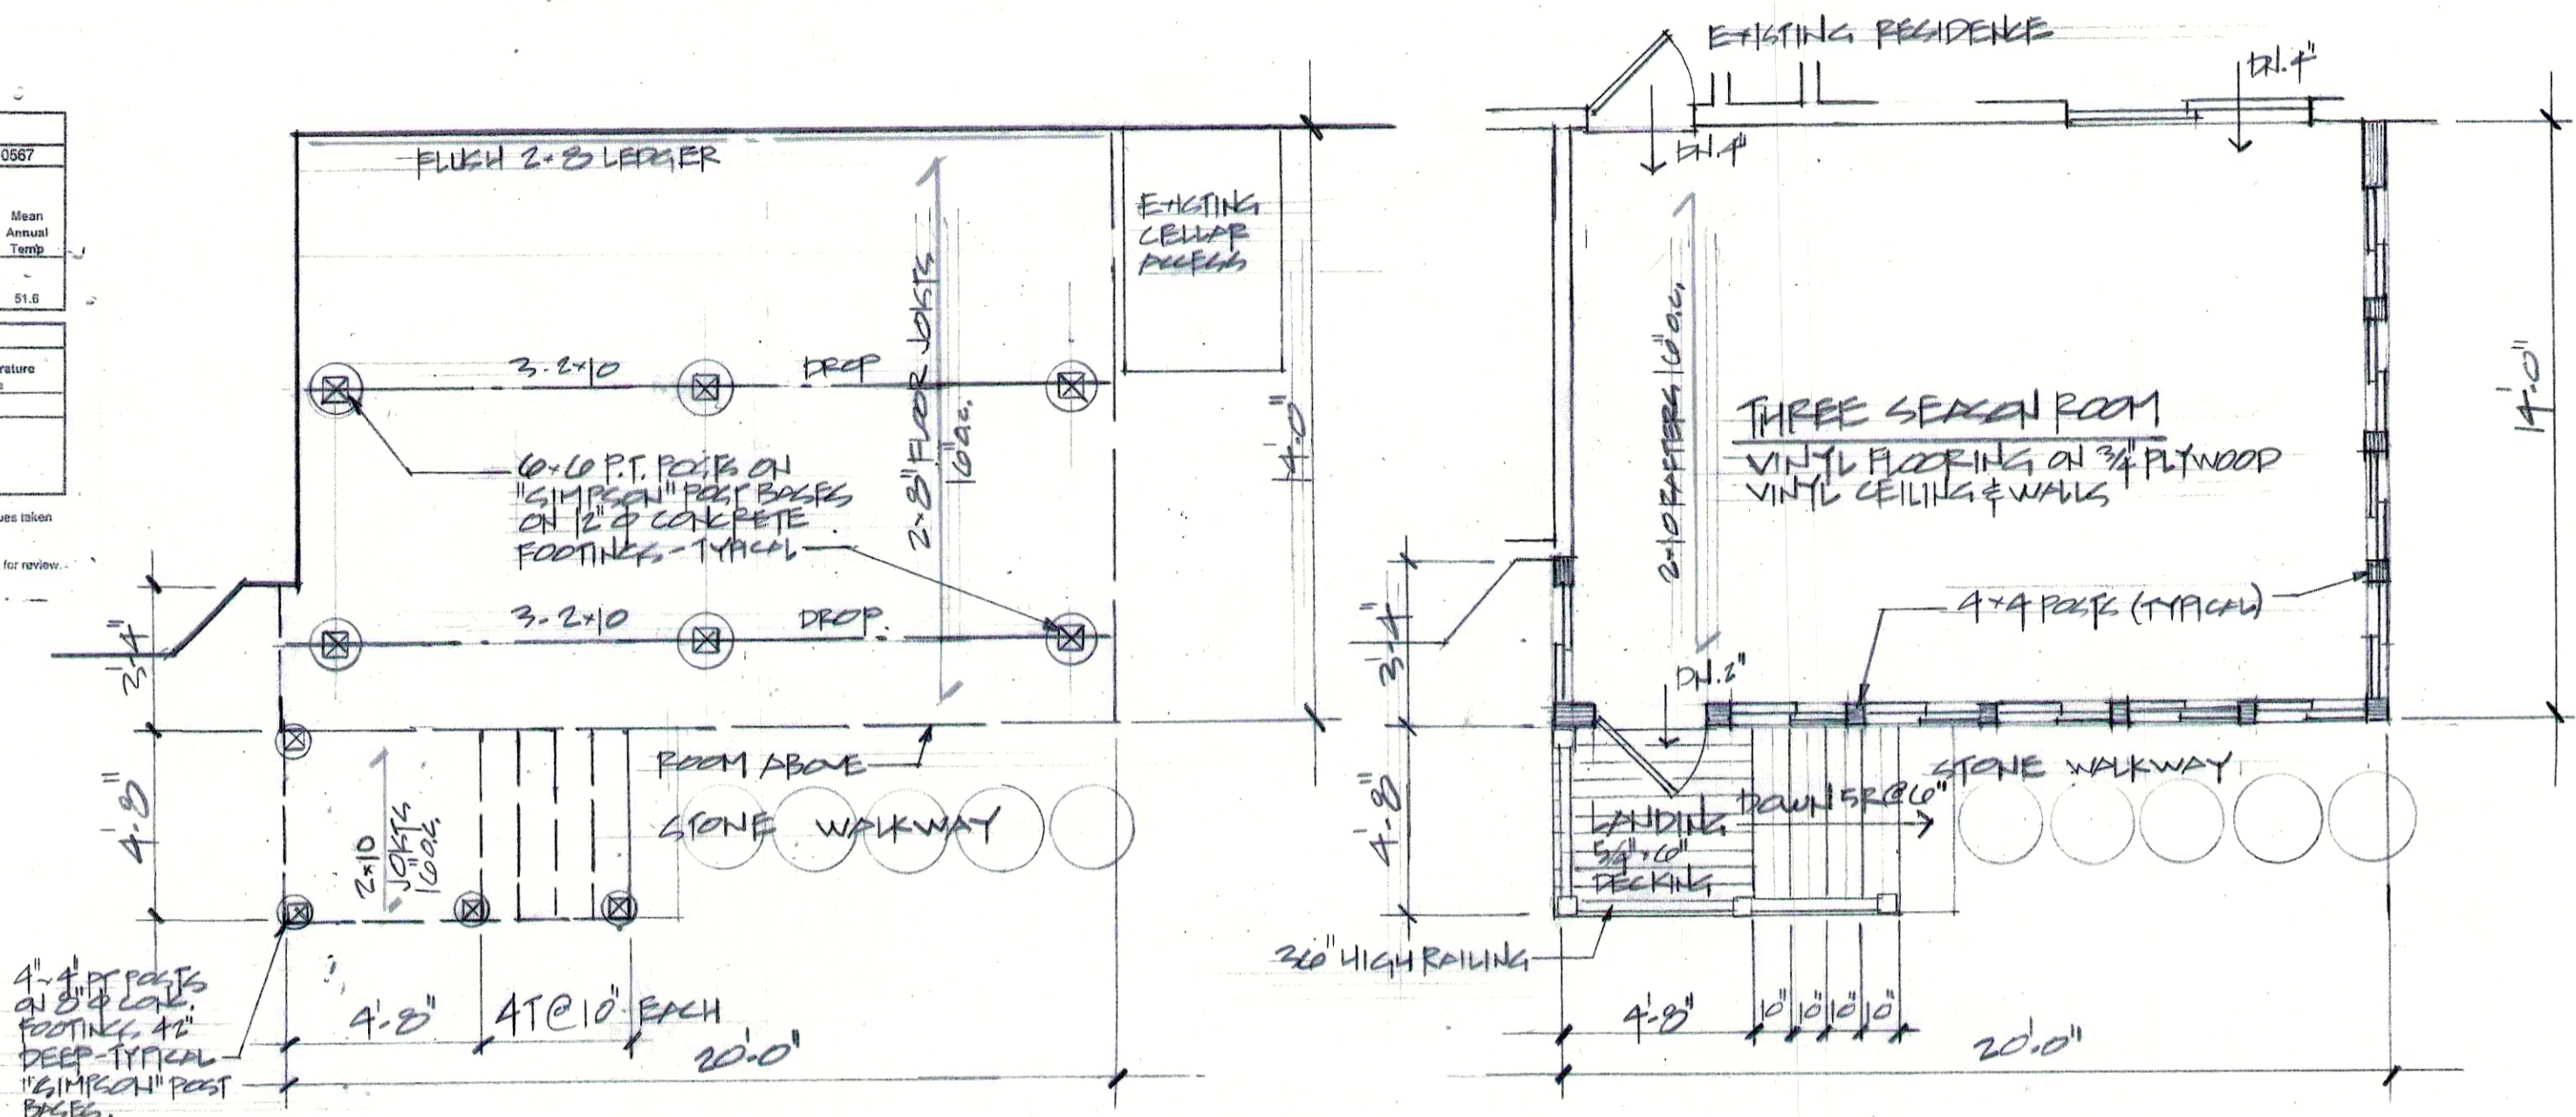 0567
Mean
Annual
Temp
51.6
rature
ues taken
for review.
FLUSH 2×8 LEDGER
EXISTING
CELLAR
ACCESS
3-2×10
DROP
2×8" FLOOR JOISTS
16" O.C.
14'-0"
6×6 P.T. POSTS ON
"SIMPSON" POST BASES
ON 12" Ø CONCRETE
FOOTINGS - TYPICAL
3-2×10
DROP
3'-4"
4'-8"
ROOM ABOVE
STONE WALKWAY
2×10
JOISTS
16" O.C.
4"×4" PT POSTS
ON 8" Ø CONC.
FOOTINGS, 42"
DEEP - TYPICAL
"SIMPSON" POST
BASES.
4'-8"
4T@10" EACH
20'-0"
EXISTING RESIDENCE
DN.4"
DN.4"
2×10 RAFTERS 16" O.C.
THREE SEASON ROOM
VINYL FLOORING ON 3/4" PLYWOOD
VINYL CEILING & WALLS
14'-0"
4×4 POSTS (TYPICAL)
3'-4"
DN.2"
4'-8"
STONE WALKWAY
DOWN 5R@6"
LANDING
5/4"×6"
DECKING
36" HIGH RAILING
4'-8"
10" 10" 10" 10"
20'-0"